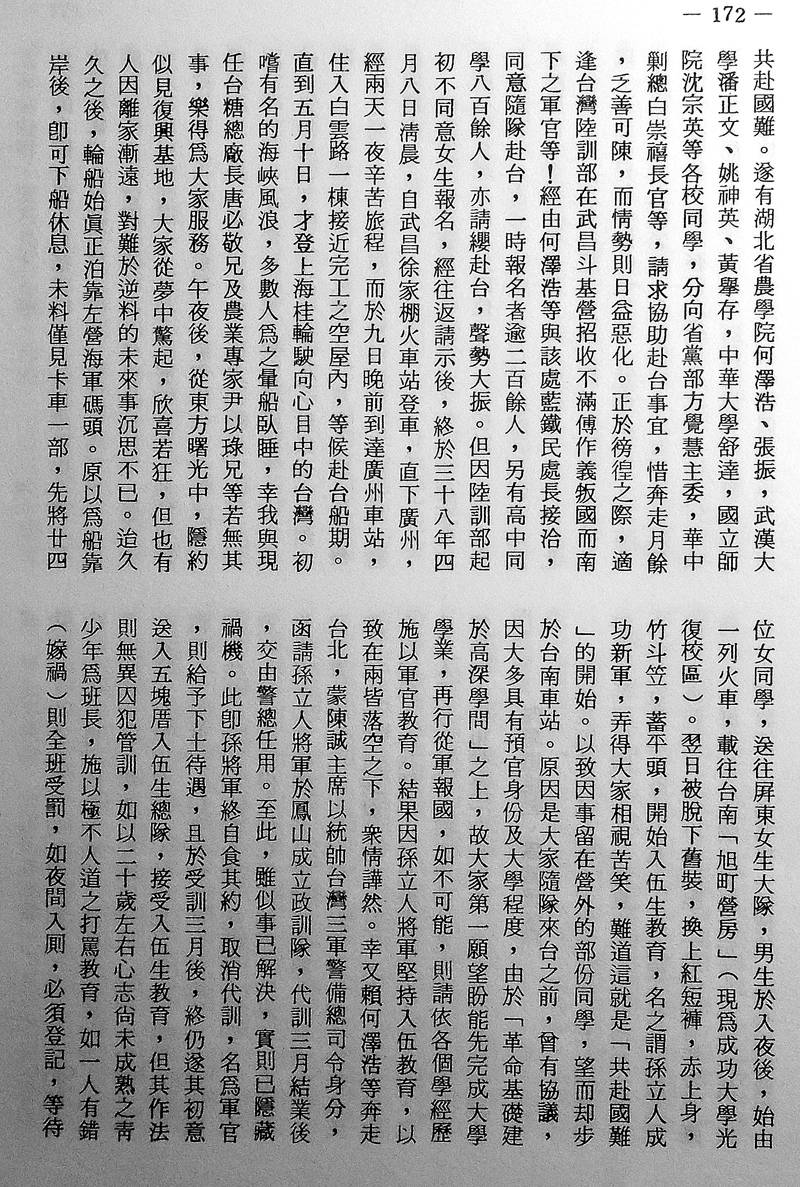 — 172 —
共赴國難。遂有湖北省農學院何澤浩、張振，武漢大
學潘正文、姚神英、黃擧存，中華大學舒達，國立師
院沈宗英等各校同學，分向省黨部方覺慧主委，華中
剿總白崇禧長官等，請求協助赴台事宜，惜奔走月餘
，乏善可陳，而情勢則日益惡化。正於徬徨之際，適
逢台灣陸訓部在武昌斗基營招收不滿傅作義叛國而南
下之軍官等！經由何澤浩等與該處藍鐵民處長接洽，
同意隨隊赴台，一時報名者逾二百餘人，另有高中同
學八百餘人，亦請纓赴台，聲勢大振。但因陸訓部起
初不同意女生報名，經往返請示後，終於三十八年四
月八日清晨，自武昌徐家棚火車站登車，直下廣州，
經兩天一夜辛苦旅程，而於九日晚前到達廣州車站，
住入白雲路一棟接近完工之空屋內，等候赴台船期。
直到五月十日，才登上海桂輪駛向心目中的台灣。初
嚐有名的海峽風浪，多數人爲之暈船臥睡，幸我與現
任台糖總廠長唐必敬兄及農業專家尹以琭兄等若無其
事，樂得爲大家服務。午夜後，從東方曙光中，隱約
似見復興基地，大家從夢中驚起，欣喜若狂，但也有
人因離家漸遠，對難於逆料的未來事沉思不已。迨久
久之後，輪船始眞正泊靠左營海軍碼頭。原以爲船靠
岸後，卽可下船休息，未料僅見卡車一部，先將廿四
位女同學，送往屏東女生大隊，男生於入夜後，始由
一列火車，載往台南「旭町營房」（現爲成功大學光
復校區）。翌日被脫下舊裝，換上紅短褲，赤上身，
竹斗笠，蓄平頭，開始入伍生教育，名之謂孫立人成
功新軍，弄得大家相視苦笑，難道這就是「共赴國難
」的開始。以致因事留在營外的部份同學，望而却步
於台南車站。原因是大家隨隊來台之前，曾有協議，
因大多具有預官身份及大學程度，由於「革命基礎建
於高深學問」之上，故大家第一願望盼能先完成大學
學業，再行從軍報國，如不可能，則請依各個學經歷
施以軍官教育。結果因孫立人將軍堅持入伍教育，以
致在兩皆落空之下，衆情譁然。幸又賴何澤浩等奔走
台北，蒙陳誠主席以統帥台灣三軍警備總司令身分，
函請孫立人將軍於鳳山成立政訓隊，代訓三月結業後
，交由警總任用。至此，雖似事已解決，實則已隱藏
禍機。此卽孫將軍終自食其約，取消代訓，名爲軍官
，則給予下士待遇，且於受訓三月後，終仍遂其初意
送入五塊厝入伍生總隊，接受入伍生教育，但其作法
則無異囚犯管訓，如以二十歲左右心志尙未成熟之靑
少年爲班長，施以極不人道之打罵教育，如一人有錯
（嫁禍）則全班受罰，如夜間入厠，必須登記，等待